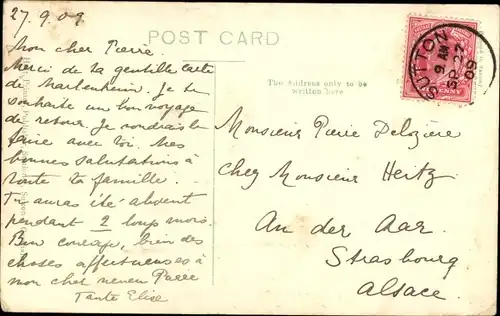 27.9.09
POST CARD
Mon cher Pierre.
Merci de ta gentille carte
de Marlenheim. Je te
souhaite un bon voyage
de retour. Je voudrais le
faire avec toi. Mes
bonnes salutations à
toute ta famille.
Tu auras été absent
pendant 2 longs mois.
Bon courage, bien des
choses affectueuses à
mon cher neveu Pierre
Tante Elise
The Address only to be
written here
SUTTON
9 AM
SP 27
09
PENNY
Monsieur Pierre Delozière
chez Monsieur Hertz
An der Aar
Strasbourg
Alsace.